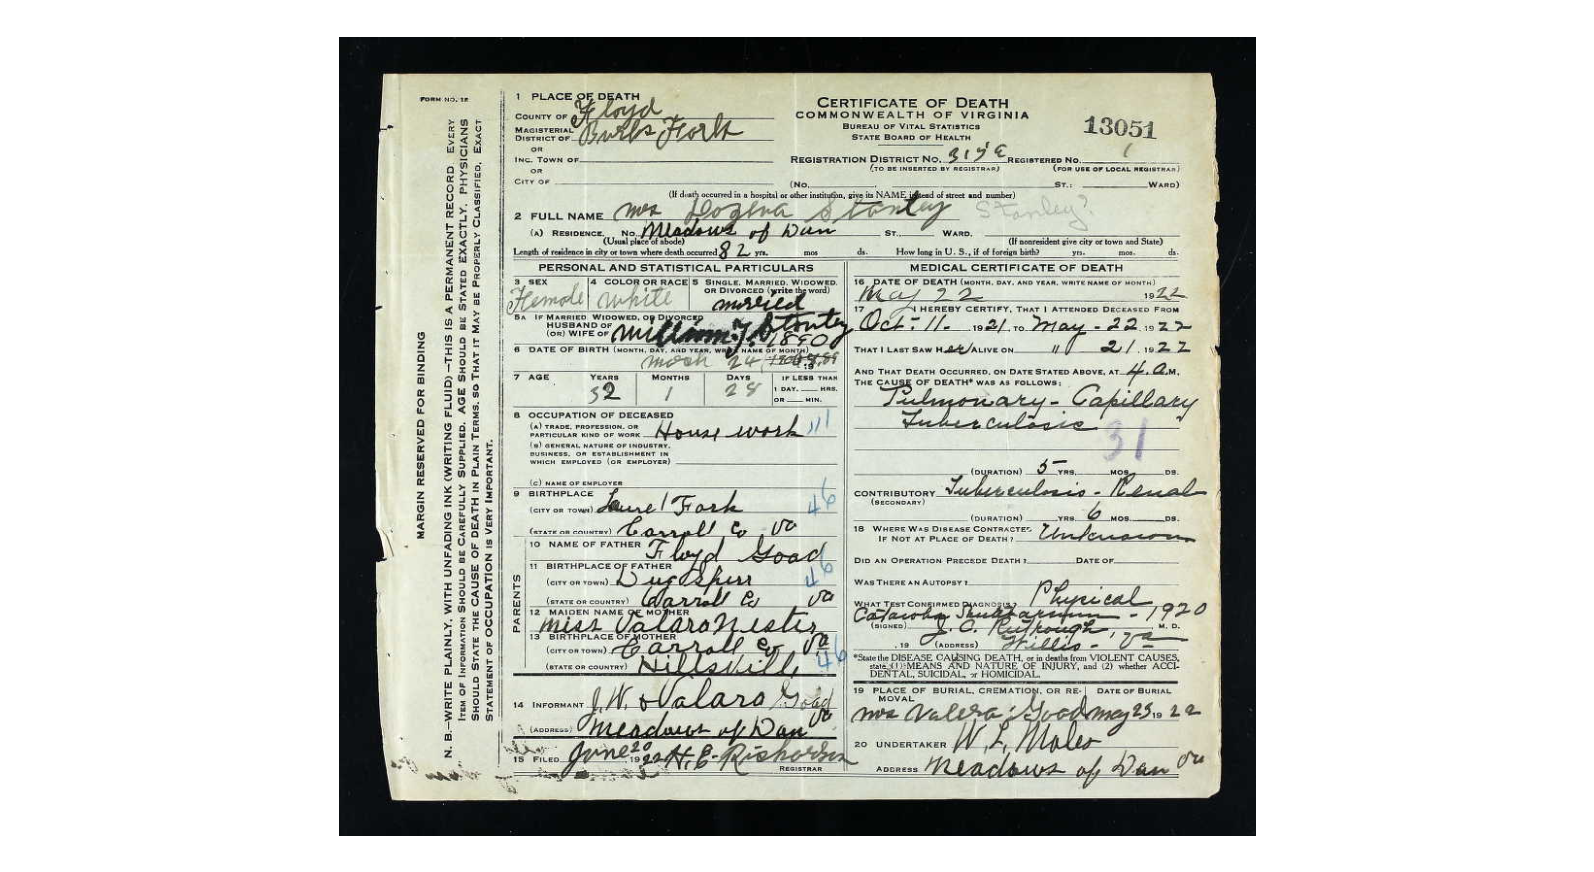 FORM NO. 12
MARGIN RESERVED FOR BINDING
N. B.—WRITE PLAINLY, WITH UNFADING INK (WRITING FLUID)—THIS IS A PERMANENT RECORD. EVERY
ITEM OF INFORMATION SHOULD BE CAREFULLY SUPPLIED. AGE SHOULD BE STATED EXACTLY. PHYSICIANS
SHOULD STATE THE CAUSE OF DEATH IN PLAIN TERMS, SO THAT IT MAY BE PROPERLY CLASSIFIED. EXACT
STATEMENT OF OCCUPATION IS VERY IMPORTANT.
1 PLACE OF DEATH
COUNTY OF Floyd
MAGISTERIAL
DISTRICT OF Burks Fork
OR
INC. TOWN OF
OR
CITY OF
CERTIFICATE OF DEATH
COMMONWEALTH OF VIRGINIA
BUREAU OF VITAL STATISTICS
STATE BOARD OF HEALTH
13051
REGISTRATION DISTRICT NO. REGISTERED NO. 1
(TO BE INSERTED BY REGISTRAR) (FOR USE OF LOCAL REGISTRAR)
(No. ST.; WARD)
(If death occurred in a hospital or other institution, give its NAME instead of street and number)
2 FULL NAME Mrs Stanley Stanley?
(A) RESIDENCE. No. Meadows of Dan ST. WARD.
(Usual place of abode) (If nonresident give city or town and State)
Length of residence in city or town where death occurred yrs. mos ds. How long in U. S., if of foreign birth? yrs. mos. ds.
PERSONAL AND STATISTICAL PARTICULARS
3 SEX Female
4 COLOR OR RACE White
5 SINGLE, MARRIED, WIDOWED, OR DIVORCED (write the word) married
5A IF MARRIED, WIDOWED, OR DIVORCED
HUSBAND OF
(OR) WIFE OF William Stanley
6 DATE OF BIRTH (MONTH, DAY, AND YEAR, WRITE NAME OF MONTH) 1890
24, 19
7 AGE YEARS 32 MONTHS 1 DAYS 28 IF LESS THAN 1 DAY, HRS. OR MIN.
8 OCCUPATION OF DECEASED
(A) TRADE, PROFESSION, OR
PARTICULAR KIND OF WORK House work
(B) GENERAL NATURE OF INDUSTRY,
BUSINESS, OR ESTABLISHMENT IN
WHICH EMPLOYED (OR EMPLOYER)
(C) NAME OF EMPLOYER
9 BIRTHPLACE
(CITY OR TOWN) Laurel Fork 46
(STATE OR COUNTRY) Carroll Co Va
PARENTS
10 NAME OF FATHER Floyd Goad
11 BIRTHPLACE OF FATHER
(CITY OR TOWN) Dugspur 46
(STATE OR COUNTRY) Carroll Co Va
12 MAIDEN NAME OF MOTHER
Miss Valara Nester
13 BIRTHPLACE OF MOTHER
(CITY OR TOWN) Carroll Co Va
(STATE OR COUNTRY) Hillsville 46
14 INFORMANT J. W. & Valara Goad
(ADDRESS) Meadows of Dan Va
15 FILED June 20 1922 H. E. REGISTRAR
MEDICAL CERTIFICATE OF DEATH
16 DATE OF DEATH (MONTH, DAY, AND YEAR, WRITE NAME OF MONTH)
May 22 1922
17 I HEREBY CERTIFY, THAT I ATTENDED DECEASED FROM
Oct - 11 - 1921 TO May - 22 1922
THAT I LAST SAW Her ALIVE ON " 21, 1922
AND THAT DEATH OCCURRED, ON DATE STATED ABOVE, AT 4 a.M.
THE CAUSE OF DEATH* WAS AS FOLLOWS:
Pulmonary - Capillary
Tuberculosis
31
(DURATION) 5 YRS. MOS. DS.
CONTRIBUTORY Tuberculosis - Renal
(SECONDARY)
(DURATION) YRS. 6 MOS. DS.
18 WHERE WAS DISEASE CONTRACTED
IF NOT AT PLACE OF DEATH? Unknown
DID AN OPERATION PRECEDE DEATH? DATE OF
WAS THERE AN AUTOPSY?
WHAT TEST CONFIRMED DIAGNOSIS? Physical
Catawba - 1920
(SIGNED) J. C. M. D.
, 19 (ADDRESS) Willis - Va
*State the DISEASE CAUSING DEATH, or in deaths from VIOLENT CAUSES,
state (1) MEANS AND NATURE OF INJURY, and (2) whether ACCI-
DENTAL, SUICIDAL, or HOMICIDAL.
19 PLACE OF BURIAL, CREMATION, OR RE- DATE OF BURIAL
MOVAL
Mrs Valera Goad May 23 1922
20 UNDERTAKER W. L.
ADDRESS Meadows of Dan Va